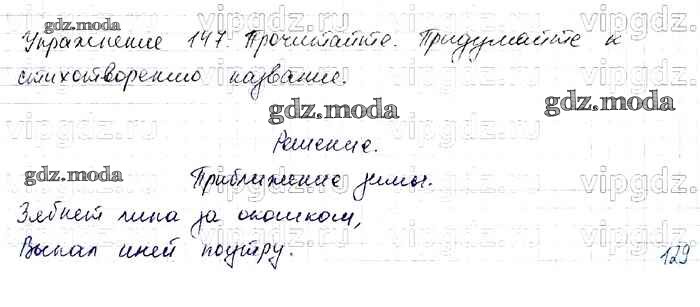 Упражнение 147. Прочитайте. Придумайте к
стихотворению название.
Решение.
Приближение зимы.
Зябнет липа за окошком,
Выпал иней поутру.
129
gdz.moda
gdz.moda
gdz.moda
gdz.moda
vipgdz.ru